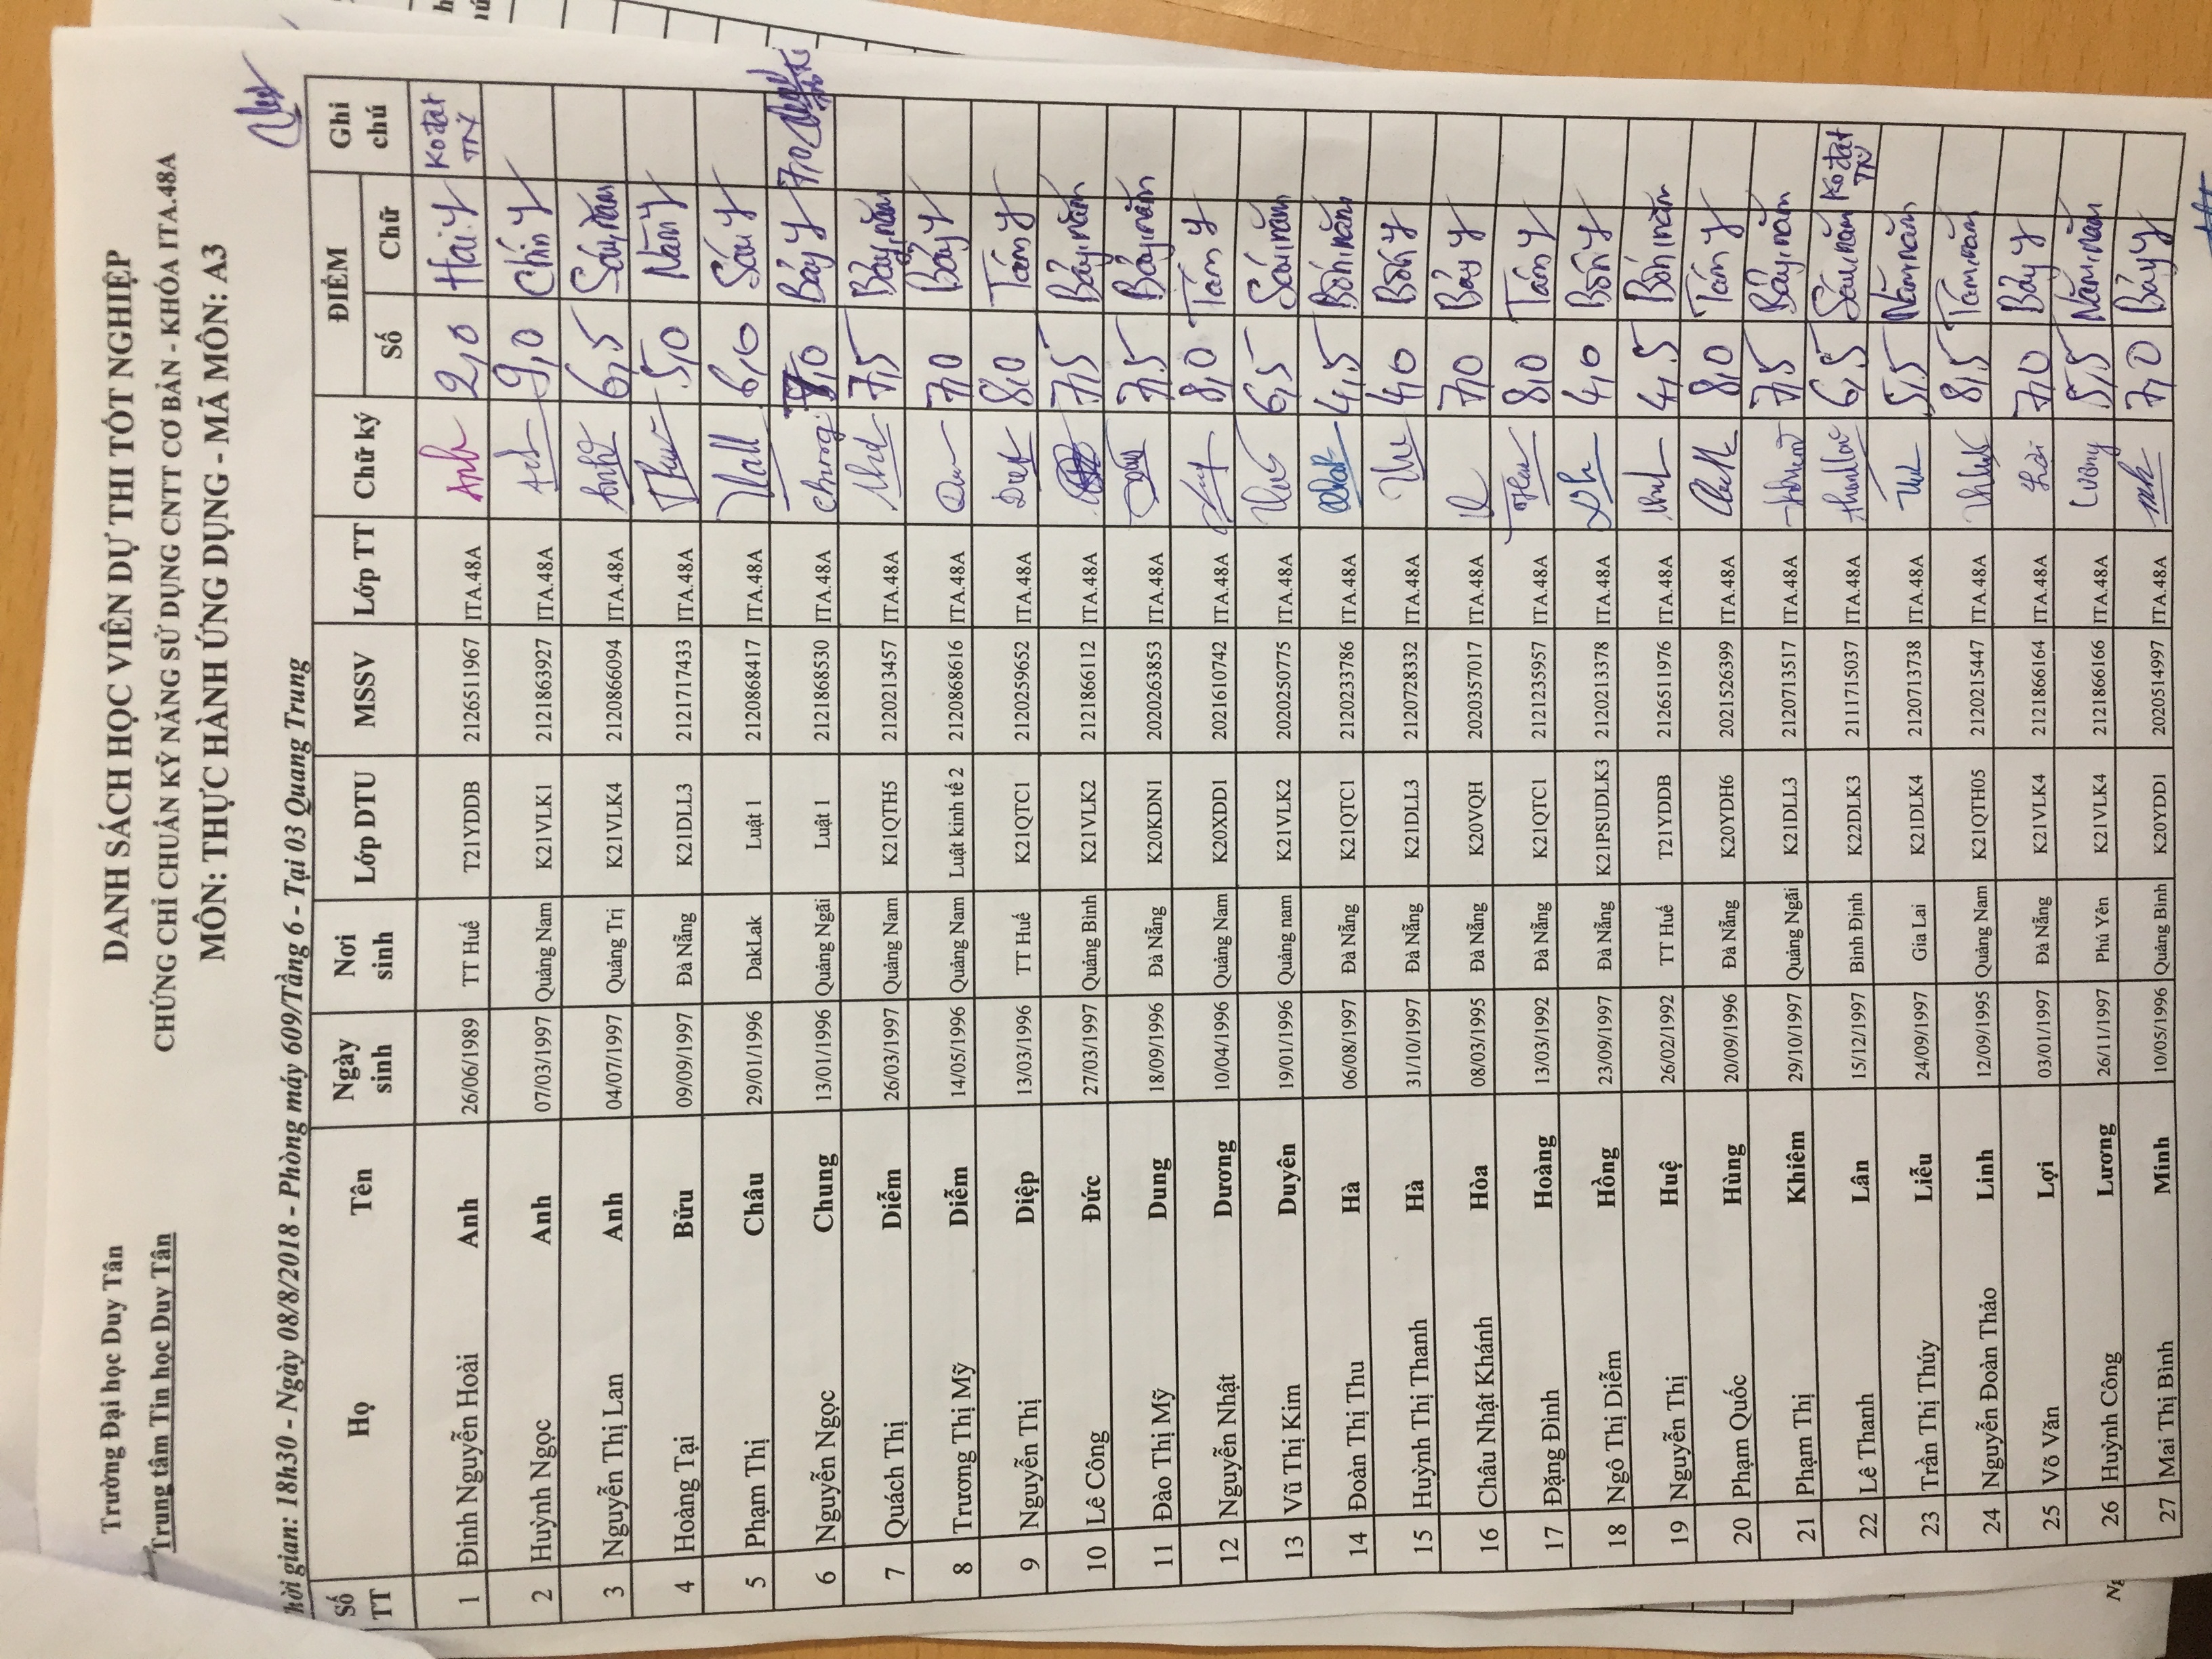 Trường Đại học Duy Tân
Trung tâm Tin học Duy Tân
DANH SÁCH HỌC VIÊN DỰ THI TỐT NGHIỆP
CHỨNG CHỈ CHUẨN KỸ NĂNG SỬ DỤNG CNTT CƠ BẢN - KHÓA ITA.48A
MÔN: THỰC HÀNH ỨNG DỤNG - MÃ MÔN: A3
hời gian: 18h30 - Ngày 08/8/2018 - Phòng máy 609/Tầng 6 - Tại 03 Quang Trung
Số TT Họ Tên Ngày sinh Nơi sinh Lớp DTU MSSV Lớp TT Chữ ký ĐIỂM Số Chữ Ghi chú
1 Đinh Nguyễn Hoài Anh 26/06/1989 TT Huế T21YDDB 2126511967 ITA.48A Anh 2,0 Hai y Ko đạt TN
2 Huỳnh Ngọc Anh 07/03/1997 Quảng Nam K21VLK1 2121863927 ITA.48A 9,0 Chín y
3 Nguyễn Thị Lan Anh 04/07/1997 Quảng Trị K21VLK4 2120866094 ITA.48A 6,5 Sáu, năm
4 Hoàng Tại Bửu 09/09/1997 Đà Nẵng K21DLL3 2121717433 ITA.48A 5,0 Năm y
5 Phạm Thị Châu 29/01/1996 DakLak Luật 1 2120868417 ITA.48A 6,0 Sáu y
6 Nguyễn Ngọc Chung 13/01/1996 Quảng Ngãi Luật 1 2121868530 ITA.48A Chung 7,0 Bảy y 7,0
7 Quách Thị Diễm 26/03/1997 Quảng Nam K21QTH5 2120213457 ITA.48A 7,5 Bảy, năm
8 Trương Thị Mỹ Diễm 14/05/1996 Quảng Nam Luật kinh tế 2 2120868616 ITA.48A 7,0 Bảy y
9 Nguyễn Thị Diệp 13/03/1996 TT Huế K21QTC1 2120259652 ITA.48A 8,0 Tám y
10 Lê Công Đức 27/03/1997 Quảng Bình K21VLK2 2121866112 ITA.48A 7,5 Bảy, năm
11 Đào Thị Mỹ Dung 18/09/1996 Đà Nẵng K20KDN1 2020263853 ITA.48A 7,5 Bảy, năm
12 Nguyễn Nhật Dương 10/04/1996 Quảng Nam K20XDD1 2021610742 ITA.48A 8,0 Tám y
13 Vũ Thị Kim Duyên 19/01/1996 Quảng nam K21VLK2 2020250775 ITA.48A 6,5 Sáu, năm
14 Đoàn Thị Thu Hà 06/08/1997 Đà Nẵng K21QTC1 2120233786 ITA.48A 4,5 Bốn, năm
15 Huỳnh Thị Thanh Hà 31/10/1997 Đà Nẵng K21DLL3 2120728332 ITA.48A 4,0 Bốn y
16 Châu Nhật Khánh Hòa 08/03/1995 Đà Nẵng K20VQH 2020357017 ITA.48A 7,0 Bảy y
17 Đặng Đình Hoàng 13/03/1992 Đà Nẵng K21QTC1 2121235957 ITA.48A 8,0 Tám y
18 Ngô Thị Diễm Hồng 23/09/1997 Đà Nẵng K21PSUDLK3 2120213378 ITA.48A 4,0 Bốn y
19 Nguyễn Thị Huệ 26/02/1992 TT Huế T21YDDB 2126511976 ITA.48A 4,5 Bốn, năm
20 Phạm Quốc Hùng 20/09/1996 Đà Nẵng K20YDH6 2021526399 ITA.48A 8,0 Tám y
21 Phạm Thị Khiêm 29/10/1997 Quảng Ngãi K21DLL3 2120713517 ITA.48A 7,5 Bảy, năm
22 Lê Thanh Lân 15/12/1997 Bình Định K22DLK3 2111715037 ITA.48A 6,5 Sáu, năm Ko đạt TN
23 Trần Thị Thúy Liễu 24/09/1997 Gia Lai K21DLK4 2120713738 ITA.48A 5,5 Năm, năm
24 Nguyễn Đoàn Thảo Linh 12/09/1995 Quảng Nam K21QTH05 2120215447 ITA.48A 8,5 Tám, năm
25 Võ Văn Lợi 03/01/1997 Đà Nẵng K21VLK4 2121866164 ITA.48A 7,0 Bảy y
26 Huỳnh Công Lương 26/11/1997 Phú Yên K21VLK4 2121866166 ITA.48A Lương 5,5 Năm, năm
27 Mai Thị Bình Minh 10/05/1996 Quảng Bình K20YDD1 2020514997 ITA.48A 7,0 Bảy y